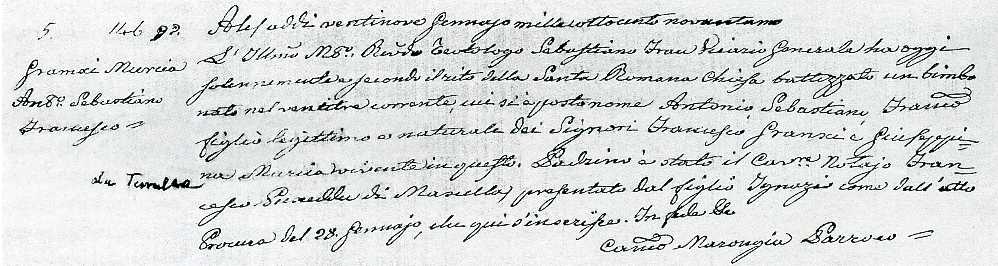 5. 146 92.
Gramsci Murcia
Anto. Sebastiano
Francesco =
Ales addi ventinove Gennajo mille ottocento novantuno
L'Illmo Mgr. Revdo Teologo Sebastiano Frau Vicario Generale ha oggi
solennemente e secondo il rito della Santa Romana Chiesa battezzato un bimbo
nato nel ventitre corrente, cui si è posto nome Antonio, Sebastiano, Franco
figlio legittimo e naturale dei Signori Francesco Gramsci e Giuseppi-
na Murcia vivente in questo. Padrino è stato il Cavre Notajo Fran-
cesco Puxeddu di Masullas, presentato dal figlio Ignazio come dall'atto
Procura del 28. Gennajo, che qui s'inscrisse. In fede
Canco Marongiu Parroco =